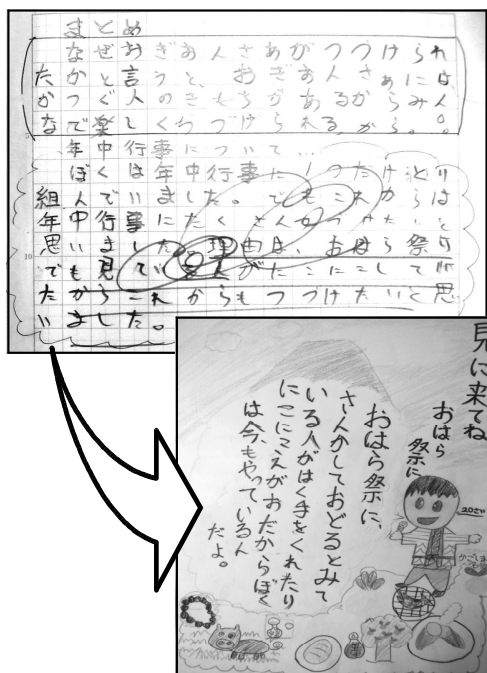 まとめ
なぜおぎおんさあがつづけられ
たかと言うと、おぎおんさあには、
かつぐ人のきもちがあるからみん
なで楽しくつづけられるから。
年中行事について…
ぼくは年中行事に一つだけとり
組んで行いました。でもこれからは
年中行事にたくさん たいと
思いました。理由は、おはら祭り
でも見ている人がにこにこして
たからこれからもつづけたいと思
いました。
見に来てね
おはら
祭に
おはら祭に、
さんかしておどるとみて
いる人がはく手をくれたり
にこにこえがおだからぼく
は今もやっているん
だよ。
20さい